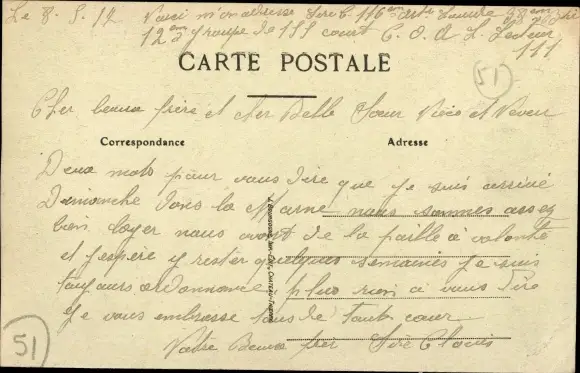 Le 8. 5. 17 Voici m'on adresse Siré C. 116 em art. Lourde 38 em Bie
12 em groupe de 155 court C. O. A L. Secteur
111
CARTE POSTALE
51
Cher beaux frère et cher Belle Sœur Nièce et Neveu
Correspondance
Adresse
Deux mots pour vous dire que je suis arrivé
Dimanche dans la Marne nous sommes assez
bien loger nous avont de la paille à volonté
et j'espère y rester quelques semaines je suis
toujours ordonnance plus rien a vous dire
Je vous embrasse tous de tout cœur
Votre Beau frer Siré Clovis
51